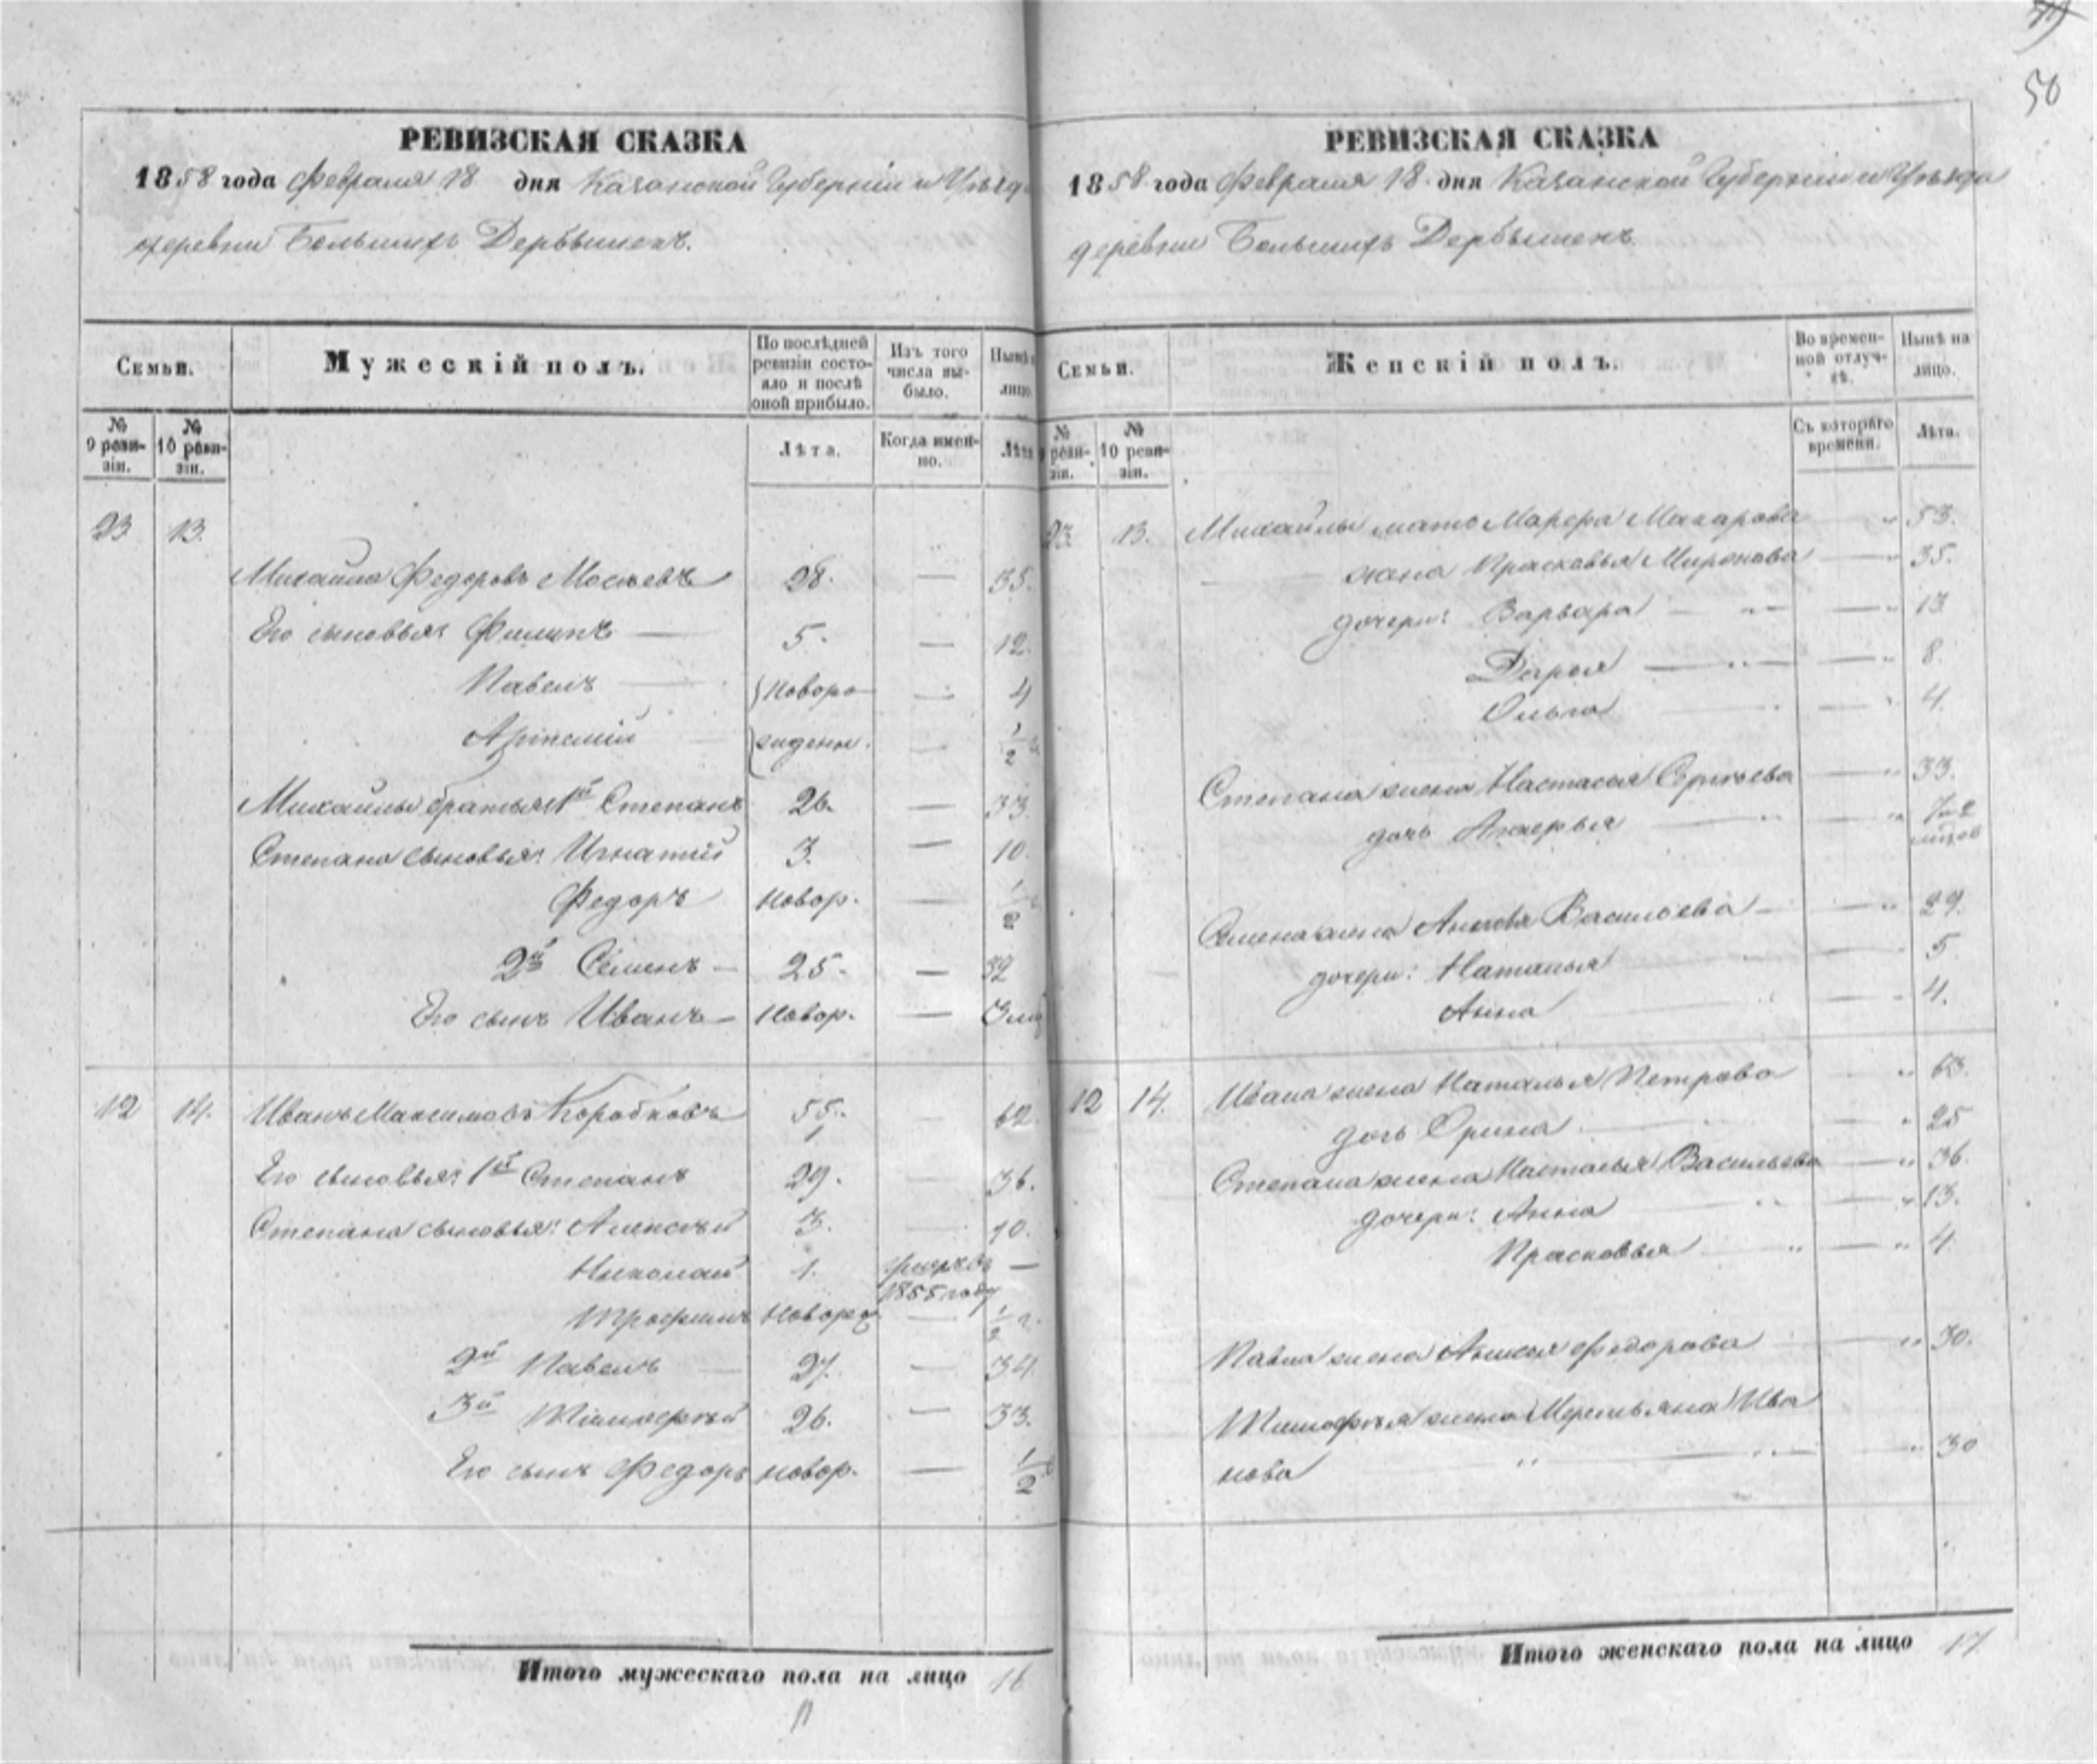 50
РЕВИЗСКАЯ СКАЗКА
1858 года Февраля 18 дня Казанской Губернiи и Уѣзда
деревни Большихъ Дербышекъ.
Семьи.
Мужескiй полъ.
По послѣдней ревизiи состояло и послѣ оной прибыло.
Изъ того числа выбыло.
Нынѣ на лицо.
№ 9 ревизiи.
№ 10 ревизiи.
Лѣта.
Когда именно.
Лѣта
23 13.
Михайла Федоровъ Мосѣевъ 28. — 35.
Его сыновья: Филипъ — 5. — 12.
Павелъ — новоро — 4
Артемiй — жденн. — 1/2 г.
Михайлы братья: 1й Степанъ 26. — 33.
Степана сыновья: Игнатiй 3. — 10.
Федоръ новор. — 1/2
2й Семенъ — 25. — 32
Его сынъ Иванъ — новор. — 3 мц
12 14. Иванъ Максимовъ Коробковъ 55. — 62.
Его сыновья: 1й Степанъ 29. — 36.
Степана сыновья: Алексѣй 3. — 10.
Николай 1. умръ въ —
1855 году
Трофимъ новорж — 1/2 г.
2й Павелъ — 27. — 34
3й Тимофѣй 26. — 33.
Его сынъ Федоръ новор. — 1/2
Итого мужескаго пола на лицо 16
РЕВИЗСКАЯ СКАЗКА
1858 года Февраля 18 дня Казанской Губернiи и Уѣзда
деревни Большихъ Дербышекъ.
Семьи.
Женскiй полъ.
Во временной отлучкѣ.
Нынѣ на лицо.
№ 9 ревизiи.
№ 10 ревизiи.
Съ котораго времени.
Лѣта.
23 13. Михайлы мать Марфа Макарова — 53.
жена Прасковья Миронова — 35.
дочери: Варвара — 13
Дарья — 8.
Ольга — 4.
Степана жена Настасья Сергѣева — 33.
дочь —
Семена жена Васильева — 29.
дочери: Наталья — 5
Анна — 4.
12 14. Ивана жена Наталья Петрова — 63.
дочь Орина — 25
Степана жена Настасья Васильева — 36
дочери: Анна — 13.
Прасковья — 4
Павла жена Федорова — 30.
Тимофѣя жена Ива
нова — 30
Итого женскаго пола на лицо 17